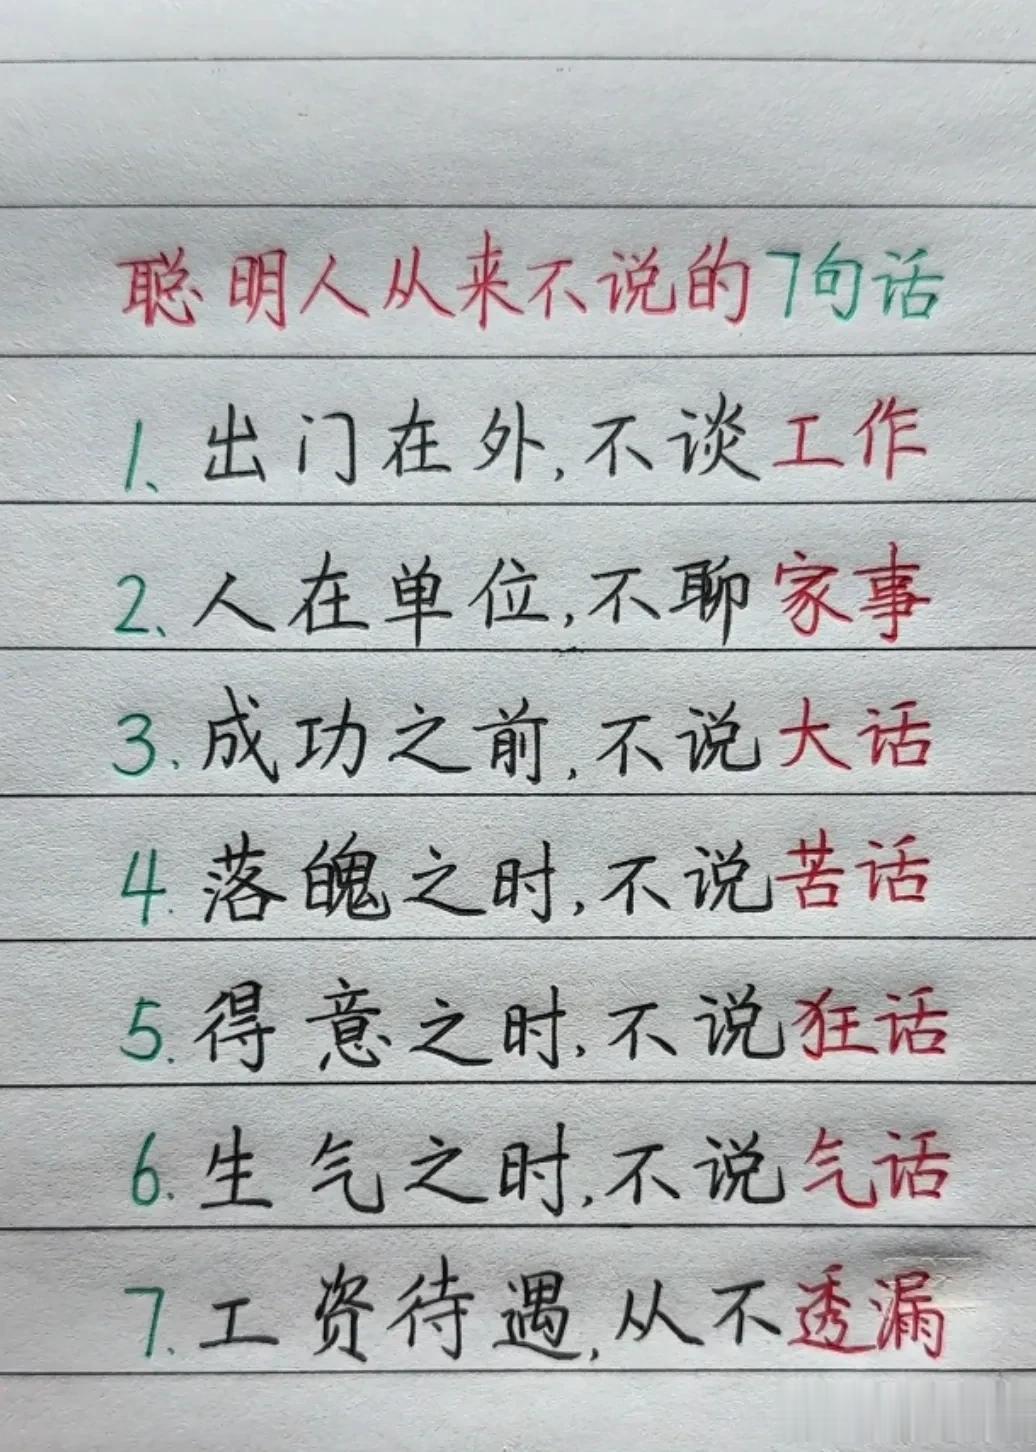 聪明人从来不说的7句话
1、出门在外,不谈工作
2、人在单位,不聊家事
3、成功之前,不说大话
4.落魄之时,不说苦话
5.得意之时,不说狂话
6.生气之时,不说气话
7.工资待遇,从不透漏